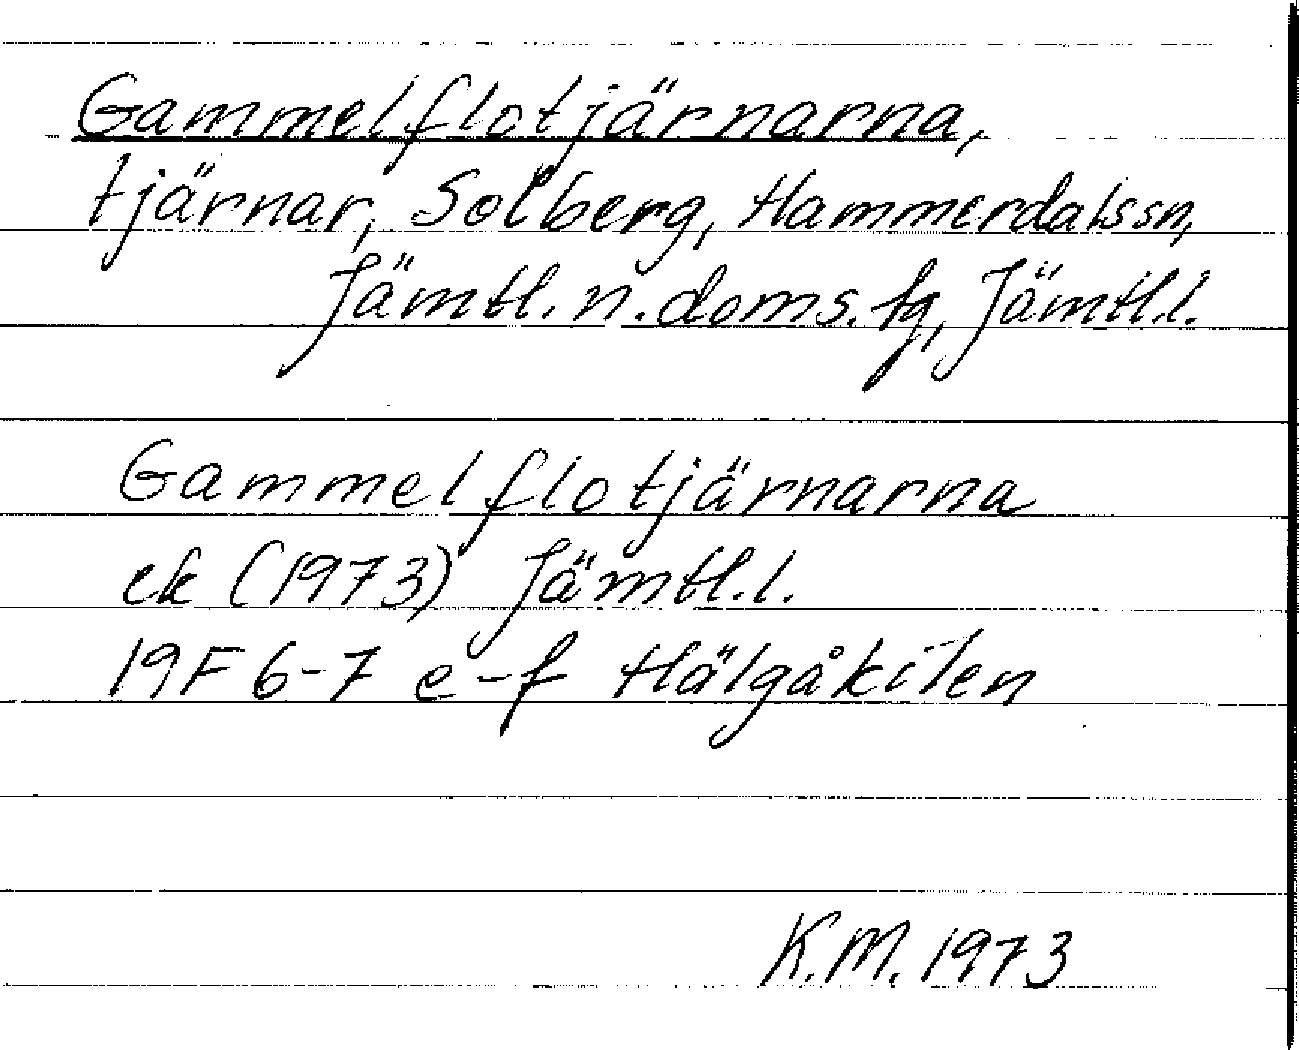 Gammelflotjärnarna,
tjärnar, Solberg, Hammerdals sn,
Jämtl. n. doms. fg, Jämtl. l.
Gammelflotjärnarna
ek (1973) Jämtl. l.
19F 6-7 e-f Hälgåkilen
K.M. 1973